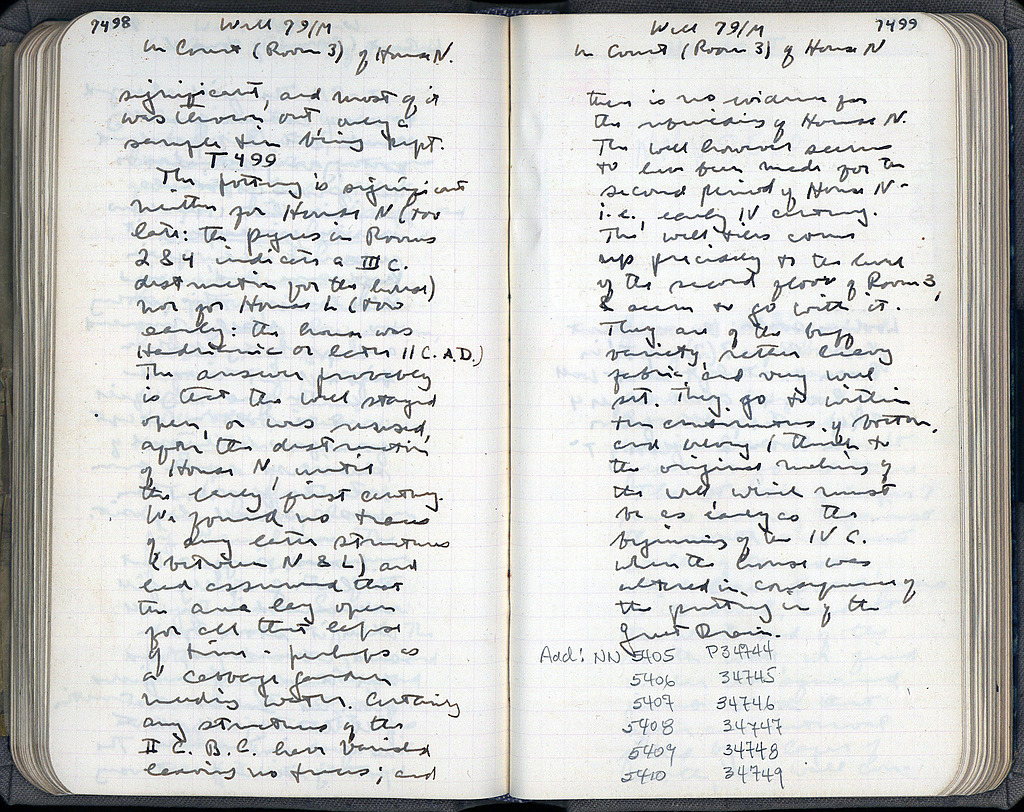 7498
Well 79/M
in Court (Room 3) of House N.
significant, and most of it
was thrown out, only a
sample tin being kept.
T 499
The pottery is significant
neither for House N (too
late: the pyres in Rooms
2 & 4 indicate a III C.
destruction for the house)
nor for House L (too
early: the house was
Hadrianic or later II C. A.D.)
The answer probably
is that the well stayed
open, or was reused,
after the destruction
of House N, until
the early first century.
We found no trace
of any later structures
(between N & L) and
had assumed that
the area lay open
for all that lapse
of time - perhaps as
a cabbage garden
needing water. Certainly
any structures of the
II C. B.C. have vanished
leaving no trace; and
7499
Well 79/M
in Court (Room 3) of House N
there is no evidence for
the rebuilding of House N.
The well however seems
to have been made for the
second period of House N -
i.e., early IV century.
The well tiles come
up precisely to the level
of the second floor of Room 3,
& seem to go with it.
They are of the buff
variety, rather heavy
fabric, and very well
set. They go to within
ten centimeters of bottom,
and belong, I think, to
the original making of
the well, which must
be as early as the
beginning of the IV C.
when the house was
altered in consequence of
the putting in of the
Great Drain.
Add: NN 5405 P 34744
5406 34745
5407 34746
5408 34747
5409 34748
5410 34749